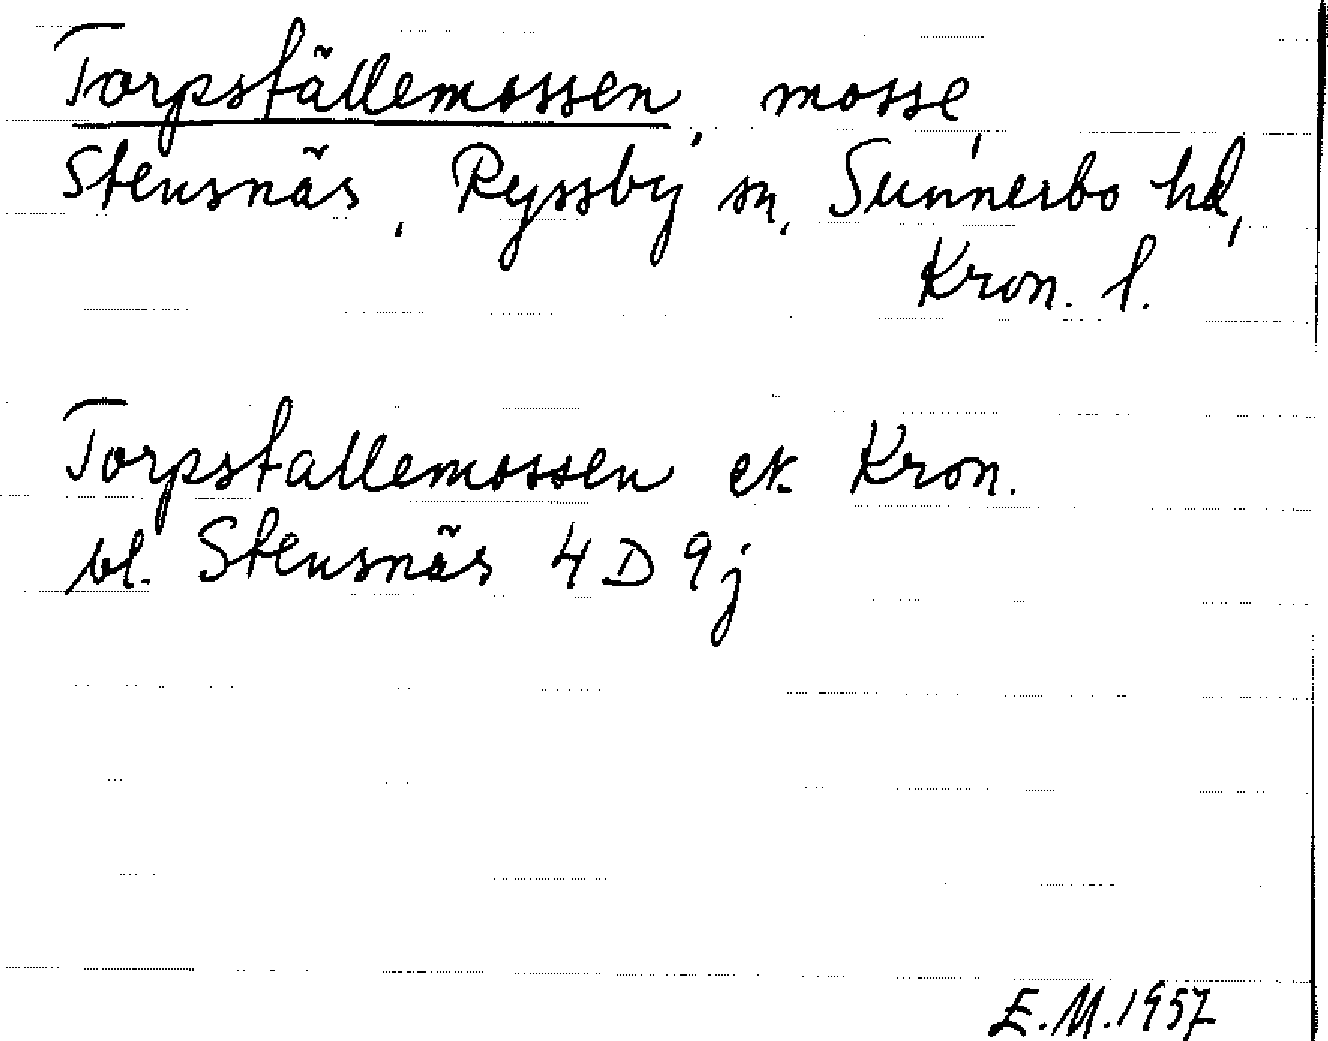 Torpställemossen, mosse,
Stensnäs, Ryssby sn, Sunnerbo hd,
Kron. l.
Torpstallemossen ek. Kron.
bl. Stensnäs 4 D 9 j
E.M. 1957